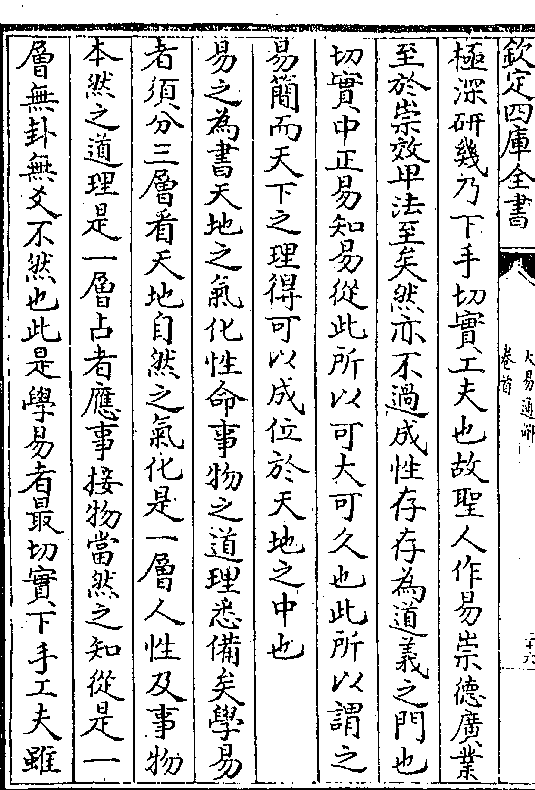 欽定四庫全書
大易通解
卷首
二十六
極深研幾乃下手切實工夫也故聖人作易崇德廣業
至於崇效卑法至矣然亦不過成性存存為道義之門也
切實中正易知易從此所以可大可久也此所以謂之
易簡而天下之理得可以成位於天地之中也
易之為書天地之氣化性命事物之道理悉備矣學易
者須分三層看天地自然之氣化是一層人性及事物
本然之道理是一層占者應事接物當然之知從是一
層無卦無爻不然也此是學易者最切實下手工夫雖